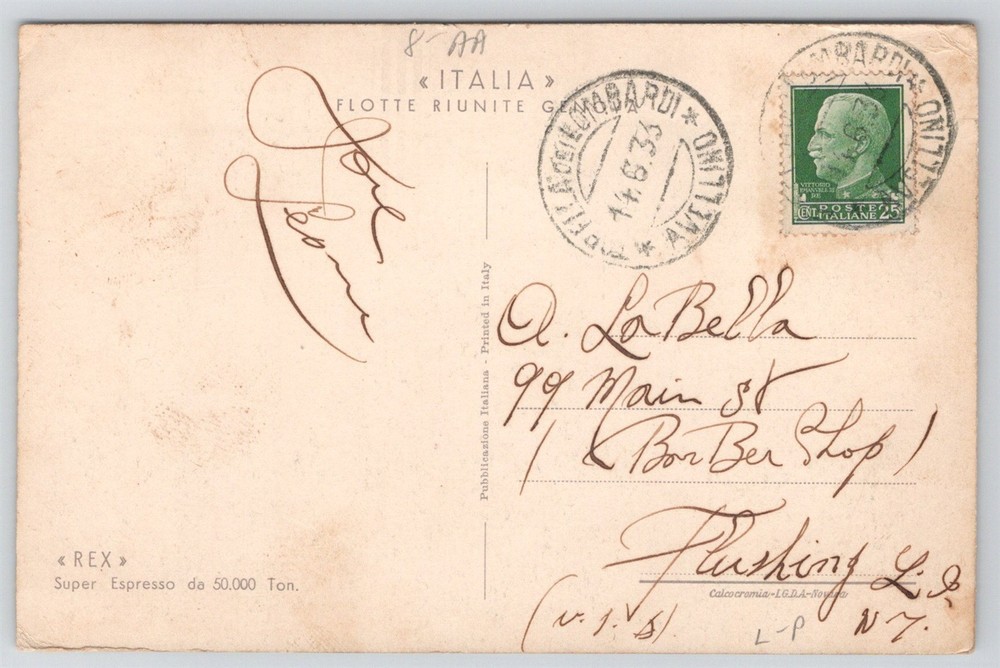 8-AA
«ITALIA»
FLOTTE RIUNITE
LOMBARDI * AVELLINO *
14.6.33
LOMBARDI * AVELLINO
VITTORIO
EMANUELE III
RE
CENT. POSTE 25
ITALIANE
A. LaBella
99 Main St
( BorBer Shop )
Flushing L.I.
N.Y.
(U.S.A)
L-P
Pubblicazione Italiana - Printed in Italy
«REX»
Super Espresso da 50.000 Ton.
Calcocromia-I.G.D.A.-Novara